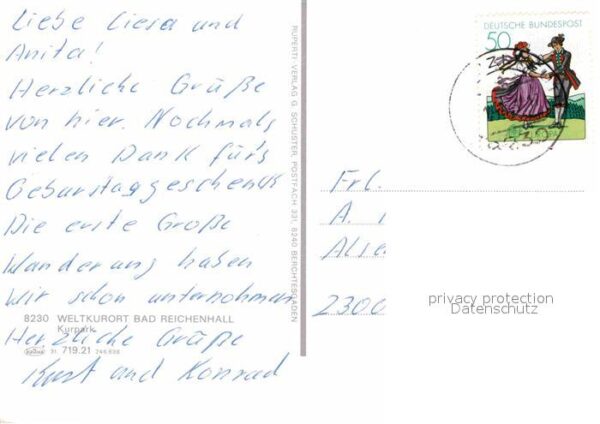 Liebe Liesa und
Anita!
Herzliche Grüße
von hier. Nochmals
vielen Dank für's
Geburstaggeschenk
Die erste Große
Wanderung haben
wir schon unternommen
8230 WELTKURORT BAD REICHENHALL
Kurpark
Herzliche Grüße
31 719.21
Kurt und Konrad
RUPERTI VERLAG G. SCHUSTER, POSTFACH 331, 8240 BERCHTESGADEN
DEUTSCHE BUNDESPOST
50
Frl.
A.
Alse
2300
privacy protection
Datenschutz